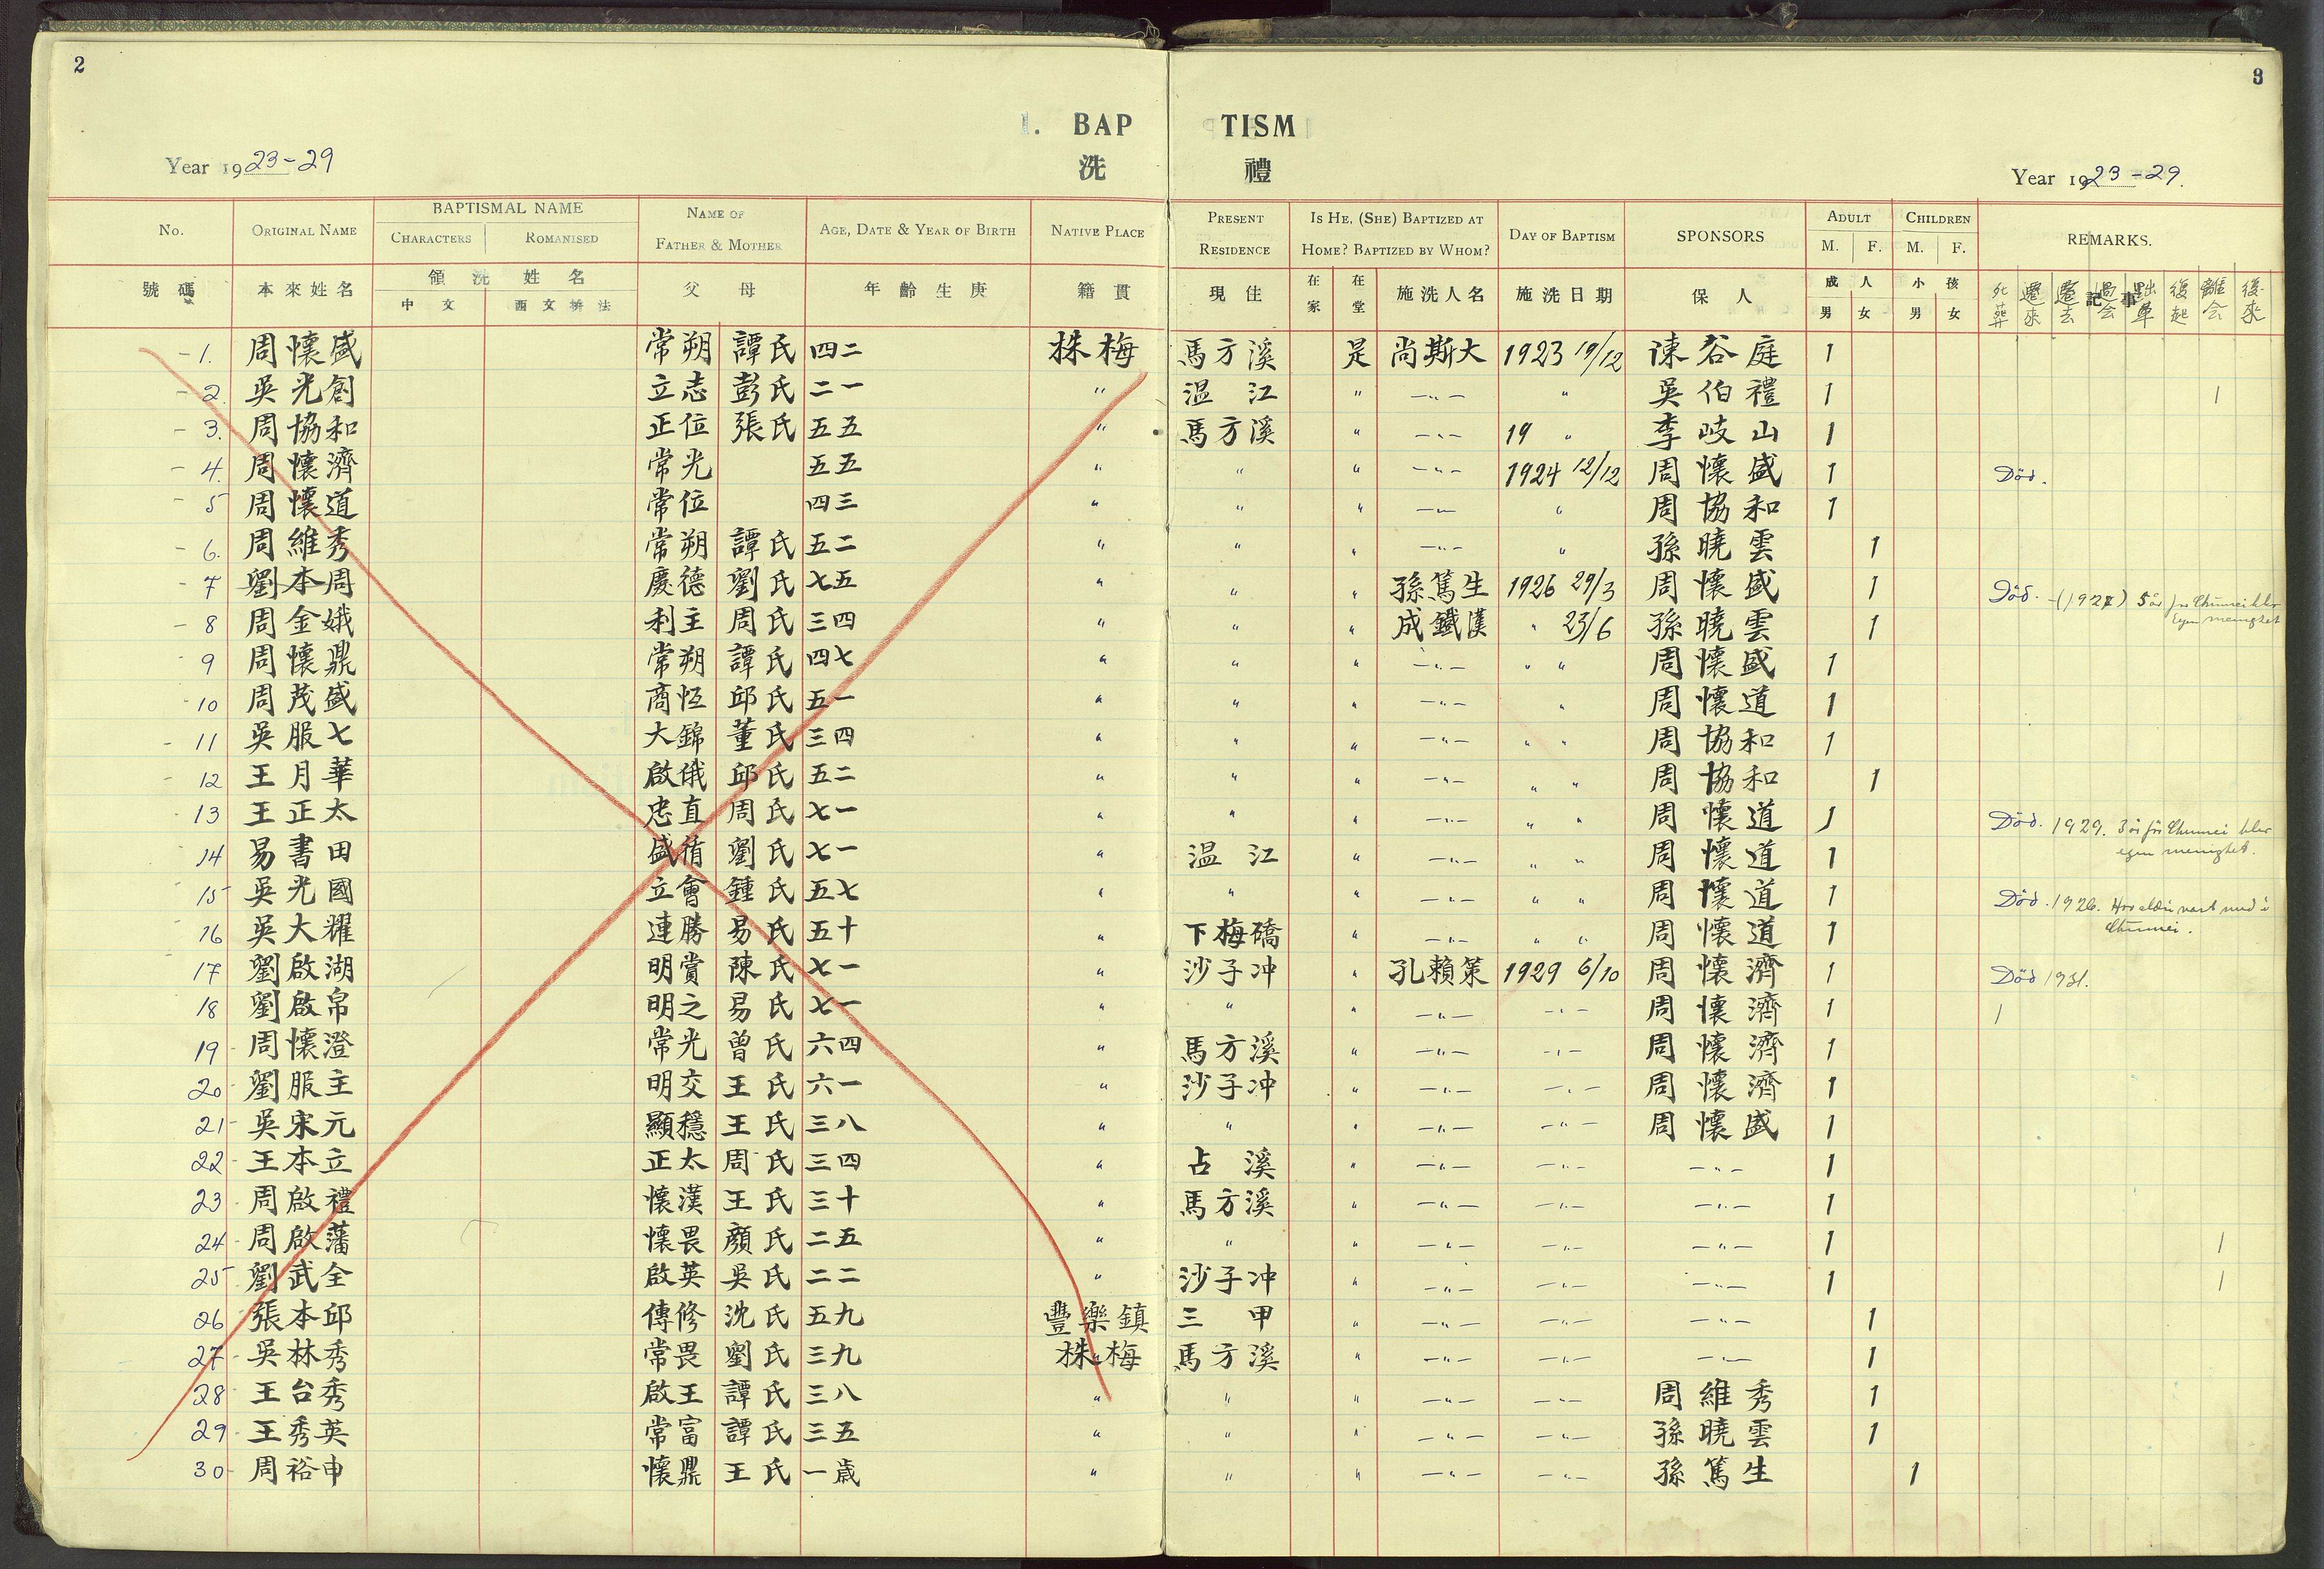 2
3
I. BAP TISM
洗 禮
Year 1923-29
Year 1923-29.
No. ORIGINAL NAME BAPTISMAL NAME CHARACTERS ROMANISED NAME OF FATHER & MOTHER AGE, DATE & YEAR OF BIRTH NATIVE PLACE PRESENT RESIDENCE IS HE, (SHE) BAPTIZED AT HOME? BAPTIZED BY WHOM? DAY OF BAPTISM SPONSORS ADULT M. F. CHILDREN M. F. REMARKS.
號碼 本來姓名 領洗姓名 中文 西文拚法 父母 年齡生庚 籍貫 現住 在家 在堂 施洗人名 施洗日期 保人 成人 男 女 小孩 男 女 記事 死葬 遷來 遷去 離会
1. 周懷盛 常朔 譚氏 四二 株梅 馬方溪 是 尚斯大 1923 19/12 谏谷庭 1
2. 吳光創 立志 彭氏 二一 " 温江 " -"- " 吳伯禮 1 1
3. 周協和 正位 張氏 五五 " 馬方溪 " -"- 19 " 李岐山 1
4. 周懷濟 常光 五五 " " " -"- 1924 12/12 周懷盛 1 Död.
5 周懷道 常位 四三 " " " -"- " 周協和 1
6. 周維秀 常朔 譚氏 五二 " " " -"- " 孫曉雲 1
7 劉本周 慶德 劉氏 七五 " " " 孫篤生 1926 29/3 周懷盛 1 Död. -(1927) 5 år før Chumei blev
egen menighet
8 周金娥 利主 周氏 三四 " " " 成鐵漢 " 23/6 孫曉雲 1
9 周懷鼎 常朔 譚氏 四七 " " " -"- " " 周懷盛 1
10 周茂盛 商恒 邱氏 五一 " " " -"- " 周懷道 1
11 吳服七 大錦 董氏 三四 " " " -"- " " 周協和 1
12 王月華 啟俄 邱氏 五二 " " " -"- " " 周協和 1
13 王正太 忠直 周氏 七一 " " " -"- " " 周懷道 1 Död. 1929. 3 år før Chumei blev
egen menighet.
14 易書田 盛循 劉氏 七一 " 温江 " -"- " " 周懷道 1
15 吳光國 立會 鍾氏 五七 " " " -"- " " 周懷道 1 Död. 1926. Har aldri vært med i
Chumei.
16 吳大耀 連勝 易氏 五十 " 下梅礄 " -"- " " 周懷道 1
17 劉啟湖 明賞 陳氏 七一 " 沙子冲 " 孔賴策 1929 6/10 周懷濟 1 Död 1931.
18 劉啟帛 明之 易氏 七一 " " " -"- -"- 周懷濟 1 1
19 周懷澄 常光 曾氏 六四 " 馬方溪 " -"- -"- 周懷濟 1
20 劉服主 明交 王氏 六一 " 沙子冲 " -"- -"- 周懷濟 1
21 吳宋元 顯穩 王氏 三八 " " " -"- -"- 周懷盛 1
22 王本立 正太 周氏 三四 " 占溪 " -"- -"- -"- 1
23 周啟禮 懷漢 王氏 三十 " 馬方溪 " -"- -"- -"- 1
24 周啟藩 懷畏 顏氏 二五 " " " -"- -"- -"- 1 1
25 劉武全 啟英 吳氏 二二 " 沙子冲 " -"- -"- -"- 1 1
26 張本邱 傳修 沈氏 五九 豐樂鎮 三甲 " -"- -"- -"- 1
27 吳林秀 常畏 劉氏 三九 株梅 馬方溪 " -"- -"- -"- 1
28 王台秀 啟王 譚氏 三八 " " " -"- -"- 周維秀 1
29 王秀英 常富 譚氏 三五 " " " -"- -"- 孫曉雲 1
30 周裕申 懷鼎 王氏 一歲 " " " -"- -"- 孫篤生 1